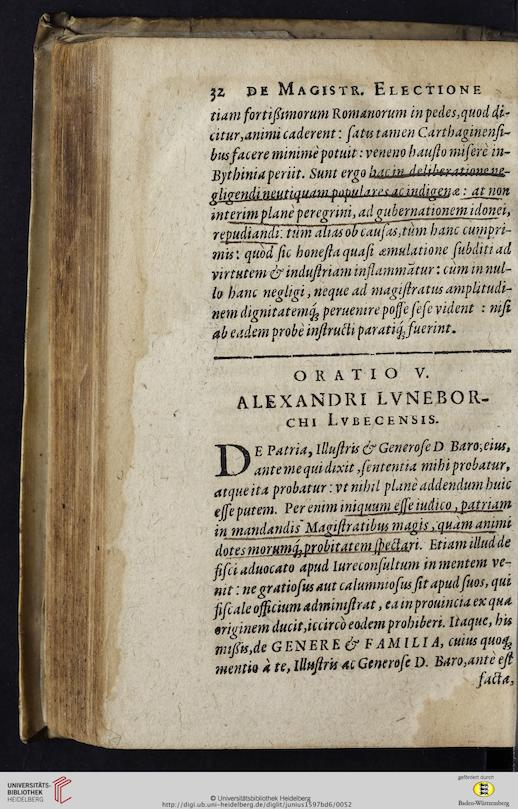 32 DE MAGISTR. ELECTIONE
tiam fortißimorum Romanorum in pedes, quod di-
citur, animi caderent: ſatis tamen Carthaginenſi-
bus facere minimè potuit: veneno hauſto miſerè in
Bythinia periit. Sunt ergo hac in deliberatione ne-
gligendi neutiquam populares ac indigenæ: at non
interim planè peregrini, ad gubernationem idonei,
repudiandi: tùm alias ob cauſas, tùm hanc cumpri-
mis: quòd ſic honeſta quaſi æmulatione ſubditi ad
virtutem & induſtriam inflammātur: cùm in nul-
lo hanc negligi, neque ad magiſtratus amplitudi-
nem dignitatemq́; peruenire poſſe ſeſe vident : niſi
ab eadem probè inſtructi paratiq́; fuerint.
ORATIO V.
ALEXANDRI LVNEBOR-
CHI LVBECENSIS.
DE Patria, Illuſtris & Generoſe D Baro, eius,
ante me qui dixit, ſententia mihi probatur,
atque ita probatur: vt nihil planè addendum huic
eſſe putem. Per enim iniquum eſſe iudico, patriam
in mandandis Magiſtratibus magis, quam animi
dotes morumq́; probitatem ſpectari. Etiam illud de
fiſci aduocato apud Iureconſultum in mentem ve-
nit: ne gratioſus aut calumnioſus ſit apud ſuos, qui
fiſcale officium adminiſtrat, ea in prouincia ex qua
originem ducit, iccircò eodem prohiberi. Itaque, his
mißis, de GENERE & FAMILIA, cuius quoq;
mentio à te, Illuſtris ac Generoſe D. Baro, antè eſt
facta,
UNIVERSITÄTS-
BIBLIOTHEK
HEIDELBERG
© Universitätsbibliothek Heidelberg
http://digi.ub.uni-heidelberg.de/diglit/junius1597bd6/0052
gefördert durch
Baden-Württemberg